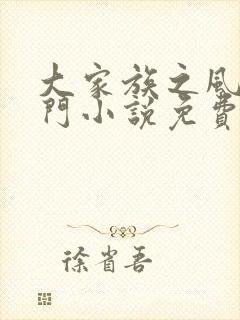 大家族之風
門小說免費
徐省吾